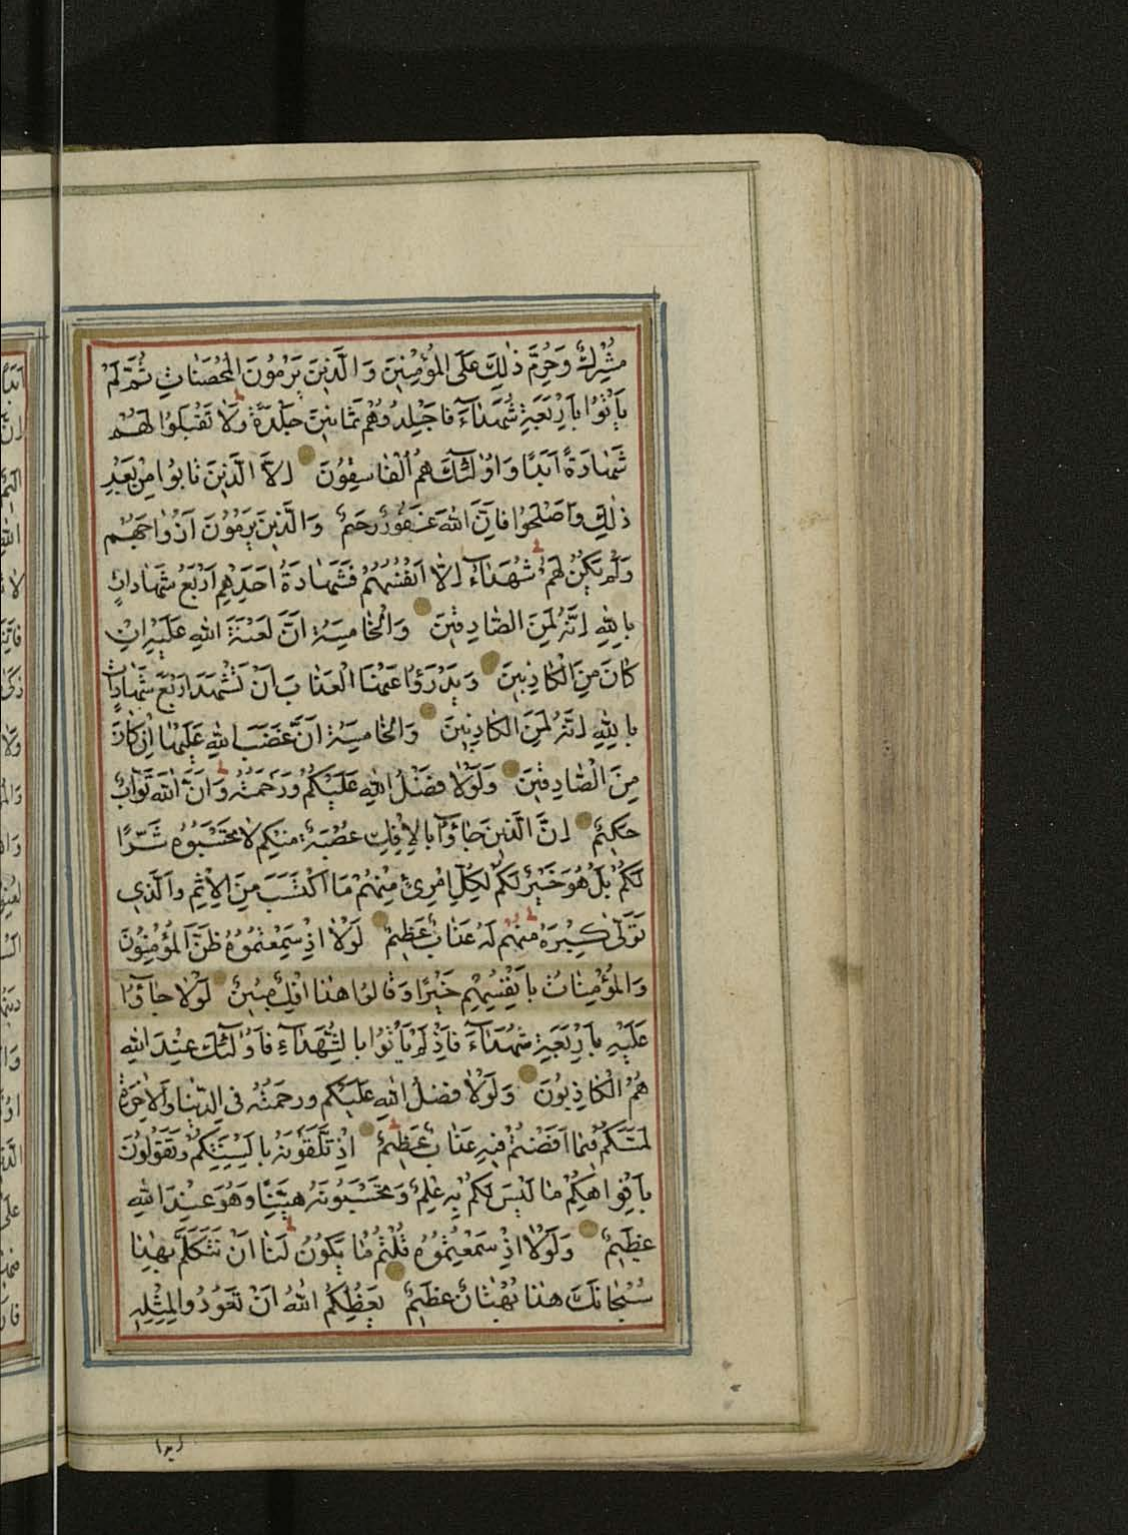 مُشْرِكٌ وَحُرِّمَ ذٰلِكَ عَلَى الْمُؤْمِنِينَ وَالَّذِينَ يَرْمُونَ الْمُحْصَنَاتِ ثُمَّ لَمْ
يَأْتُوا بِأَرْبَعَةِ شُهَدَاءَ فَاجْلِدُوهُمْ ثَمَانِينَ جَلْدَةً وَلَا تَقْبَلُوا لَهُمْ
شَهَادَةً اَبَدًا وَاُولٰئِكَ هُمُ الْفَاسِقُونَ اِلَّا الَّذِينَ تَابُوا مِنْ بَعْدِ
ذٰلِكَ وَاَصْلَحُوا فَاِنَّ اللّٰهَ غَفُورٌ رَحِيمٌ وَالَّذِينَ يَرْمُونَ اَزْوَاجَهُمْ
وَلَمْ يَكُنْ لَهُمْ شُهَدَاءُ اِلَّا اَنْفُسُهُمْ فَشَهَادَةُ اَحَدِهِمْ اَرْبَعُ شَهَادَاتٍ
بِاللّٰهِ اِنَّهُ لَمِنَ الصَّادِقِينَ وَالْخَامِسَةُ اَنَّ لَعْنَةَ اللّٰهِ عَلَيْهِ اِنْ
كَانَ مِنَ الْكَاذِبِينَ وَيَدْرَؤُا عَنْهَا الْعَذَابَ اَنْ تَشْهَدَ اَرْبَعَ شَهَادَاتٍ
بِاللّٰهِ اِنَّهُ لَمِنَ الْكَاذِبِينَ وَالْخَامِسَةُ اَنَّ غَضَبَ اللّٰهِ عَلَيْهَا اِنْ كَانَ
مِنَ الْصَّادِقِينَ وَلَوْلَا فَضْلُ اللّٰهِ عَلَيْكُمْ وَرَحْمَتُهُ وَاَنَّ اللّٰهَ تَوَّابٌ
حَكِيمٌ اِنَّ الَّذِينَ جَاؤُا بِالْاِفْكِ عُصْبَةٌ مِنْكُمْ لَا تَحْسَبُوهُ شَرًّا
لَكُمْ بَلْ هُوَ خَيْرٌ لَكُمْ لِكُلِّ امْرِئٍ مِنْهُمْ مَا اكْتَسَبَ مِنَ الْاِثْمِ وَالَّذِي
تَوَلّٰى كِبْرَهُ مِنْهُمْ لَهُ عَذَابٌ عَظِيمٌ لَوْلَا اِذْ سَمِعْتُمُوهُ ظَنَّ الْمُؤْمِنُونَ
وَالْمُؤْمِنَاتُ بِاَنْفُسِهِمْ خَيْرًا وَقَالُوا هٰذَا اِفْكٌ مُبِينٌ لَوْلَا جَاؤُا
عَلَيْهِ بِاَرْبَعَةِ شُهَدَاءَ فَاِذْ لَمْ يَأْتُوا بِالشُّهَدَاءِ فَاُولٰئِكَ عِنْدَ اللّٰهِ
هُمُ الْكَاذِبُونَ وَلَوْلَا فَضْلُ اللّٰهِ عَلَيْكُمْ وَرَحْمَتُهُ فِي الدُّنْيَا وَالْاٰخِرَةِ
لَمَسَّكُمْ فِيمَا اَفَضْتُمْ فِيهِ عَذَابٌ عَظِيمٌ اِذْ تَلَقَّوْنَهُ بِاَلْسِنَتِكُمْ وَتَقُولُونَ
بِاَفْوَاهِكُمْ مَا لَيْسَ لَكُمْ بِهِ عِلْمٌ وَتَحْسَبُونَهُ هَيِّنًا وَهُوَ عِنْدَ اللّٰهِ
عَظِيمٌ وَلَوْلَا اِذْ سَمِعْتُمُوهُ قُلْتُمْ مَا يَكُونُ لَنَا اَنْ نَتَكَلَّمَ بِهٰذَا
سُبْحَانَكَ هٰذَا بُهْتَانٌ عَظِيمٌ يَعِظُكُمُ اللّٰهُ اَنْ تَعُودُوا لِمِثْلِهِ